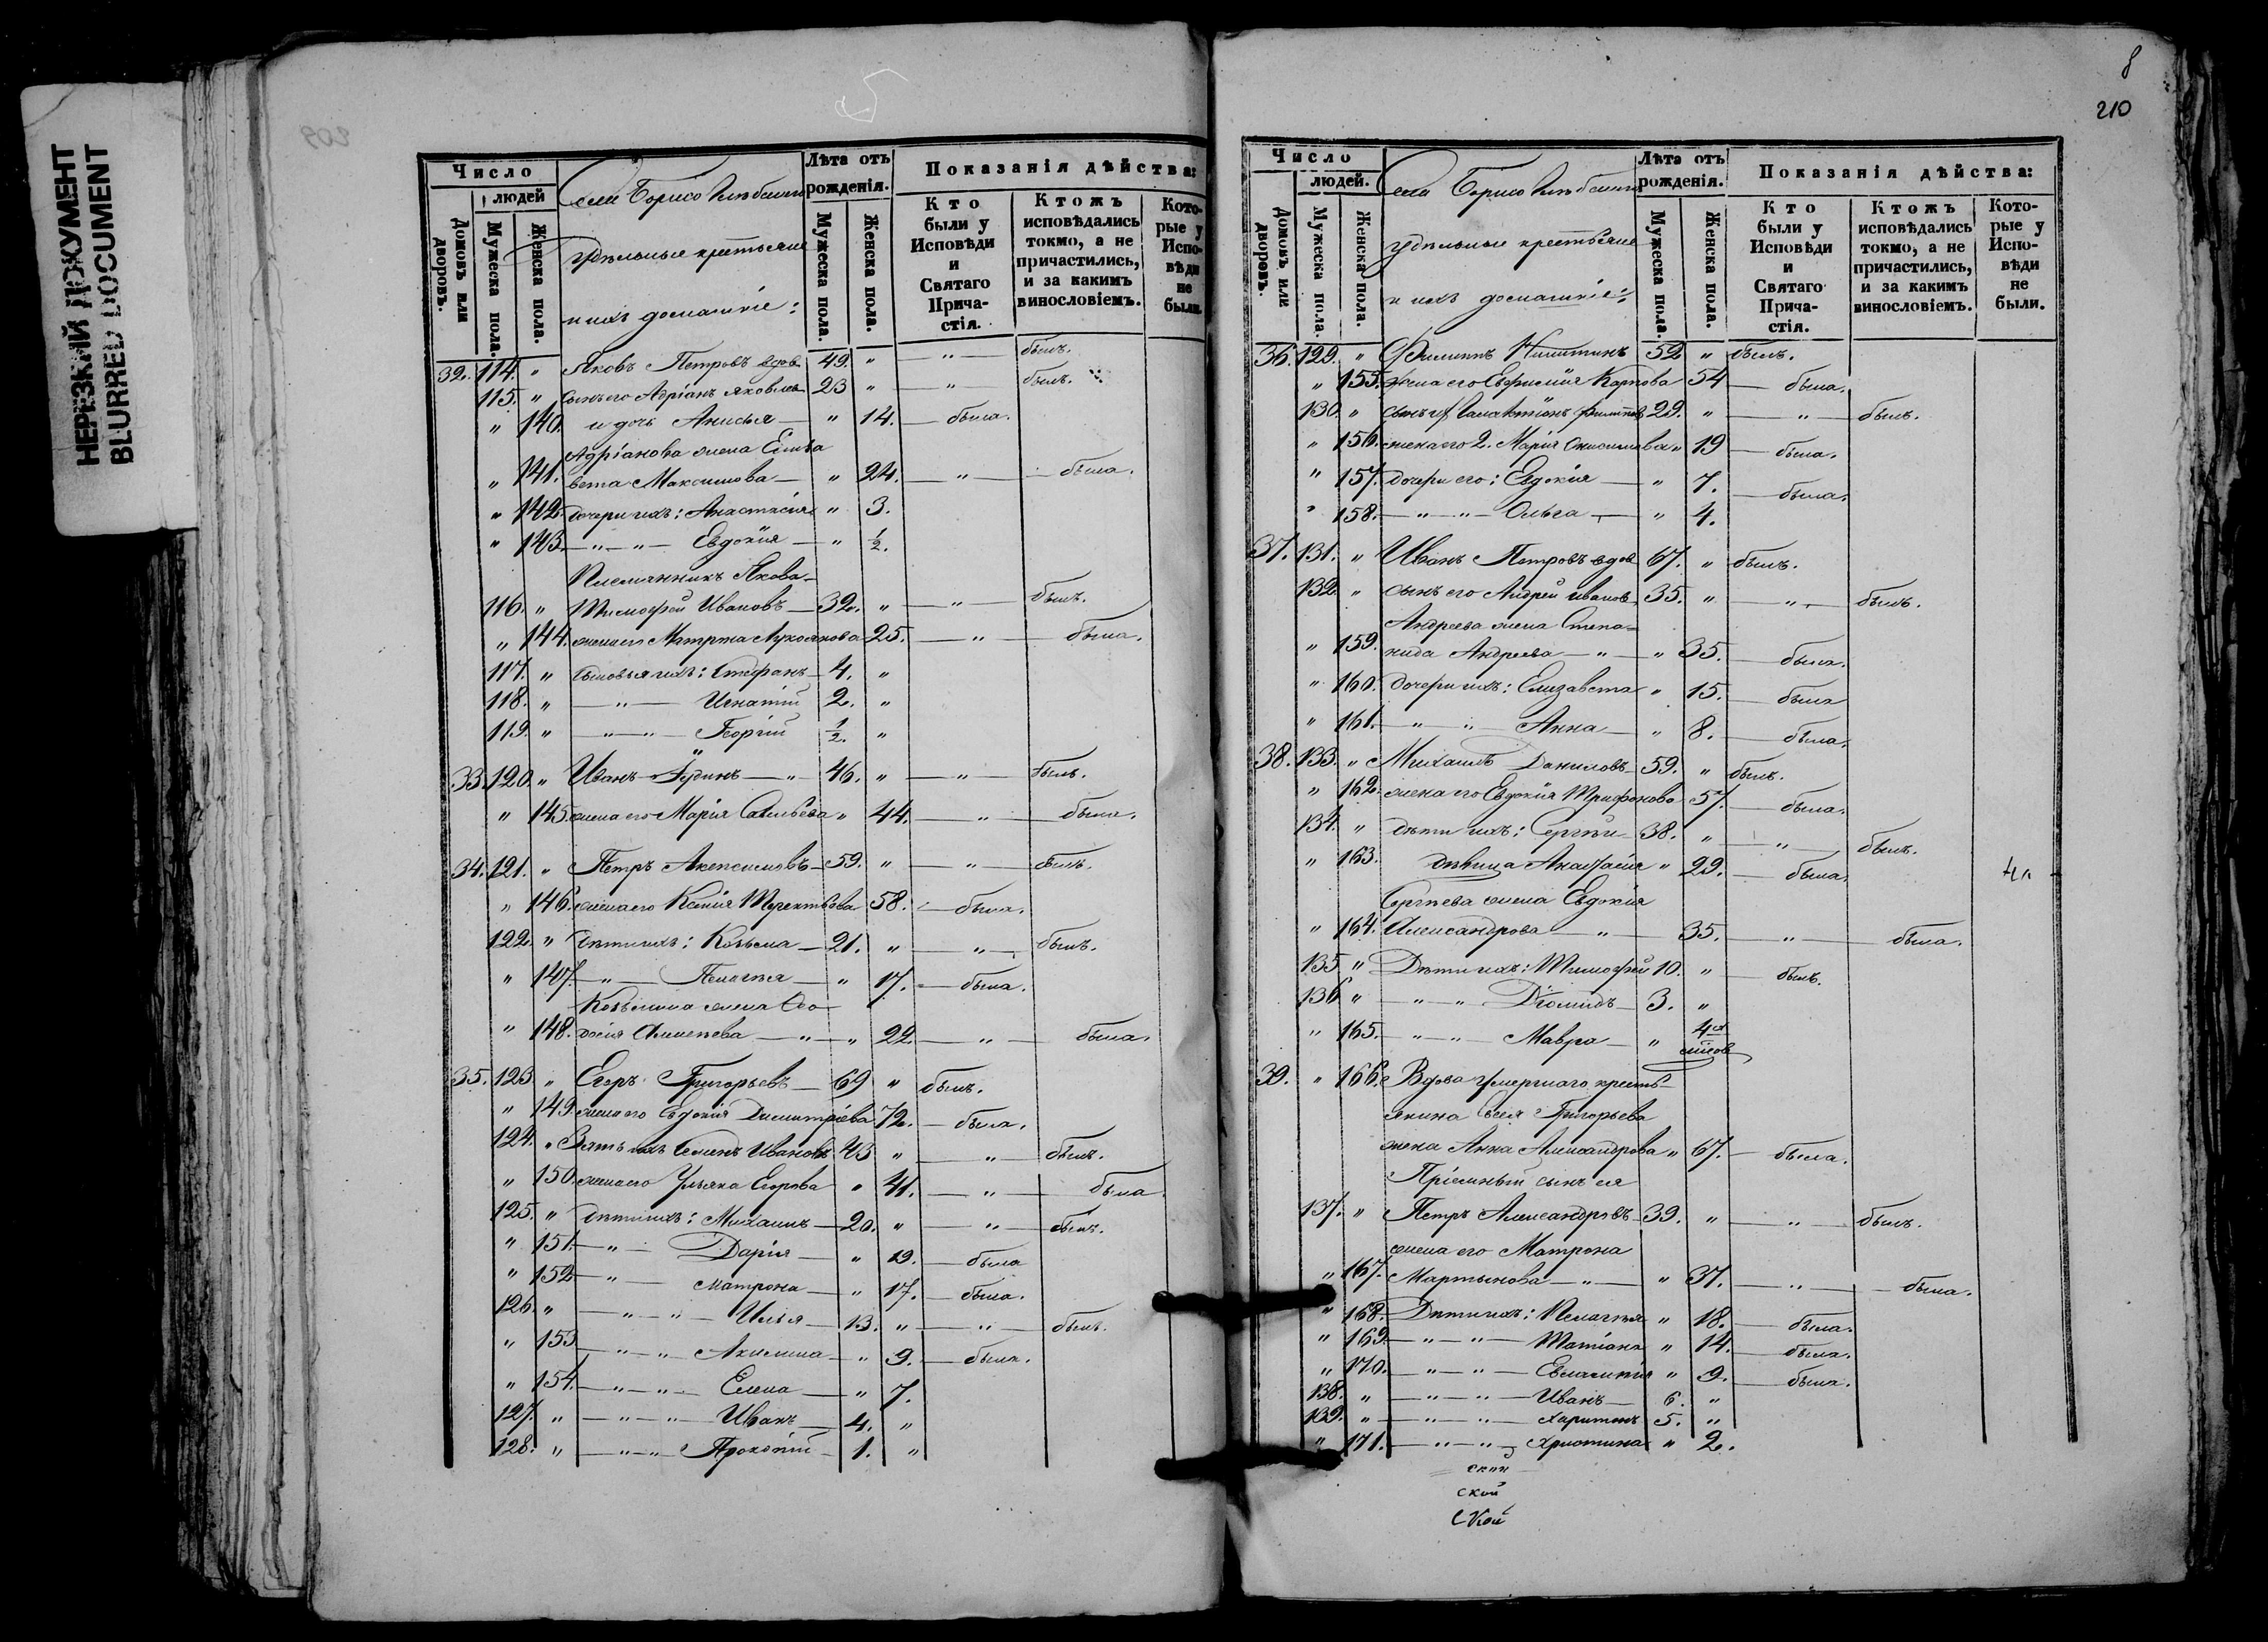 НЕРЕЗКИЙ ДОКУМЕНТ
BLURRED DOCUMENT
209
Число
людей
Домовъ или дворовъ.
Мужеска пола.
Женска пола.
удѣльные крестьяне
и ихъ домашніе:
Лѣта отъ рожденія.
Мужеска пола.
Женска пола.
Показанія дѣйства:
Кто были у Исповѣди и Святаго Прича-стія.
Ктожъ исповѣдались токмо, а не причастились, и за какимъ винословіемъ.
Кото-рые у Испо-вѣди не были.
32. 114. " Яковъ Петровъ вдов 49. " — " — былъ.
115. " сынъ его Адріанъ Яковлев 23 " — " былъ.
" 140. и дочь Анисья — " 14. — была.
Адріанова жена Елиса
" 141. вета Максимова — " 24. — " — была.
" 142. дочери ихъ: Анастасія " 3.
" 143. — " — " — Евдокія — " 1/2.
Племянникъ Якова
116. " Тимофей Ивановъ — 32. " — " — былъ.
" 144. жена его Матрона Лукоянова 25. — " — была.
117. " сыновья ихъ: Стефанъ — 4. "
118. " — " — Игнатій 2. "
119. " — " — " — Георгій 1/2. "
33. 120. " Иванъ — " 46. " — " — былъ.
" 145. жена его Марія Савельева " 44. — " — была.
34. 121. " Петръ Акепсимовъ — 59. " — " — былъ.
" 146. жена его Ксенія Терентьева 58. — была.
122. " дѣти ихъ: Козьма — 21. " — " — былъ.
" 147. — " — Пелагея — " 17. — была.
Козьмина жена Ѳео
" 148. досія Алексѣева — " — " 22. — " — была.
35. 123 " Егоръ Григорьевъ — 69 " былъ.
" 149. жена его Евдокія Димитріева 72. — была.
124. " Зять ихъ Семенъ Ивановъ 43 " — " — былъ.
" 150. жена его Ульяна Егорова " 41. — " — была
125. " дѣти ихъ: Михаилъ — 20. " — " — былъ.
" 151. — " — Дарія — " 19. — была
" 152 — " — Матрона — " 17. — была.
126. " — " — " — Илья — 13. " — " — былъ.
" 153 — " — " Акилина — " 9. — была.
" 154. — " — " — Елена — " 7.
127. " — " — " — Иванъ — 4. "
128. " — " — " Прокопій — 1. "
8
210
Число
людей.
Домовъ или дворовъ.
Мужеска пола.
Женска пола.
Села
удѣльные крестьяне
и ихъ домашніе:
Лѣта отъ рожденія.
Мужеска пола.
Женска пола.
Показанія дѣйства:
Кто были у Исповѣди и Святаго Прича-стія.
Ктожъ исповѣдались токмо, а не причастились, и за какимъ винословіемъ.
Кото-рые у Испо-вѣди не были.
36. 129. " Филиппъ Никитинъ 52 " былъ.
" 155. жена его Евфимія Карпова 54 — была.
130. " сынъ их Галактіонъ Филиппов 29. " — " — былъ.
" 156. жена его 2. Марія Онисимова " 19 — была.
" 157. дочери его: Евдокія — " 7. — была.
" 158. — " — " — Ольга — " 4.
37. 131. " Иванъ Петровъ вдов 67. " былъ.
132. " сынъ его Андрей Иванов 35. " — " — былъ.
Андреева жена Степа-
" 159. нида Андреева — " — " 35. — была.
" 160. дочери ихъ: Елизавета " 15. — была
" 161. — " — " — Анна — " 8. — была.
38. 133. " Михаилъ Даниловъ — 59. " былъ.
" 162. жена его Евдокія Трифонова 57. — была.
134. " дѣти ихъ: Сергѣй — 38. " — " — былъ.
" 163. дѣвица Анастасія " 29. — была.
Сергѣева жена Евдокія
" 164. Александрова — " — 35. — " — была.
135 " Дѣти ихъ: Тимофей 10. " — былъ.
136 " — " — " Діомидъ — 3. "
" 165. — " — " — Мавра — " 4
39. " 166. Вдова умершаго кресть
янина Григорьева
жена Анна Александрова " 67. — была.
Пріемный сынъ ея
137. " Петръ Александровъ 39. " — " — былъ.
жена его Матрона
" 167. Мартынова — " — " 37. — " — была.
" 168. Дѣти ихъ: Пелагея " 18. — была.
" 169. — " — " — Татіана " 14. — была.
" 170. — " — " — Евлампія " 9. — была.
138. " — " — " — Иванъ — 6. "
139. " — " — " — Харитонъ 5. "
" 171. — " — " — Христина " 2.
ской
ской
ской